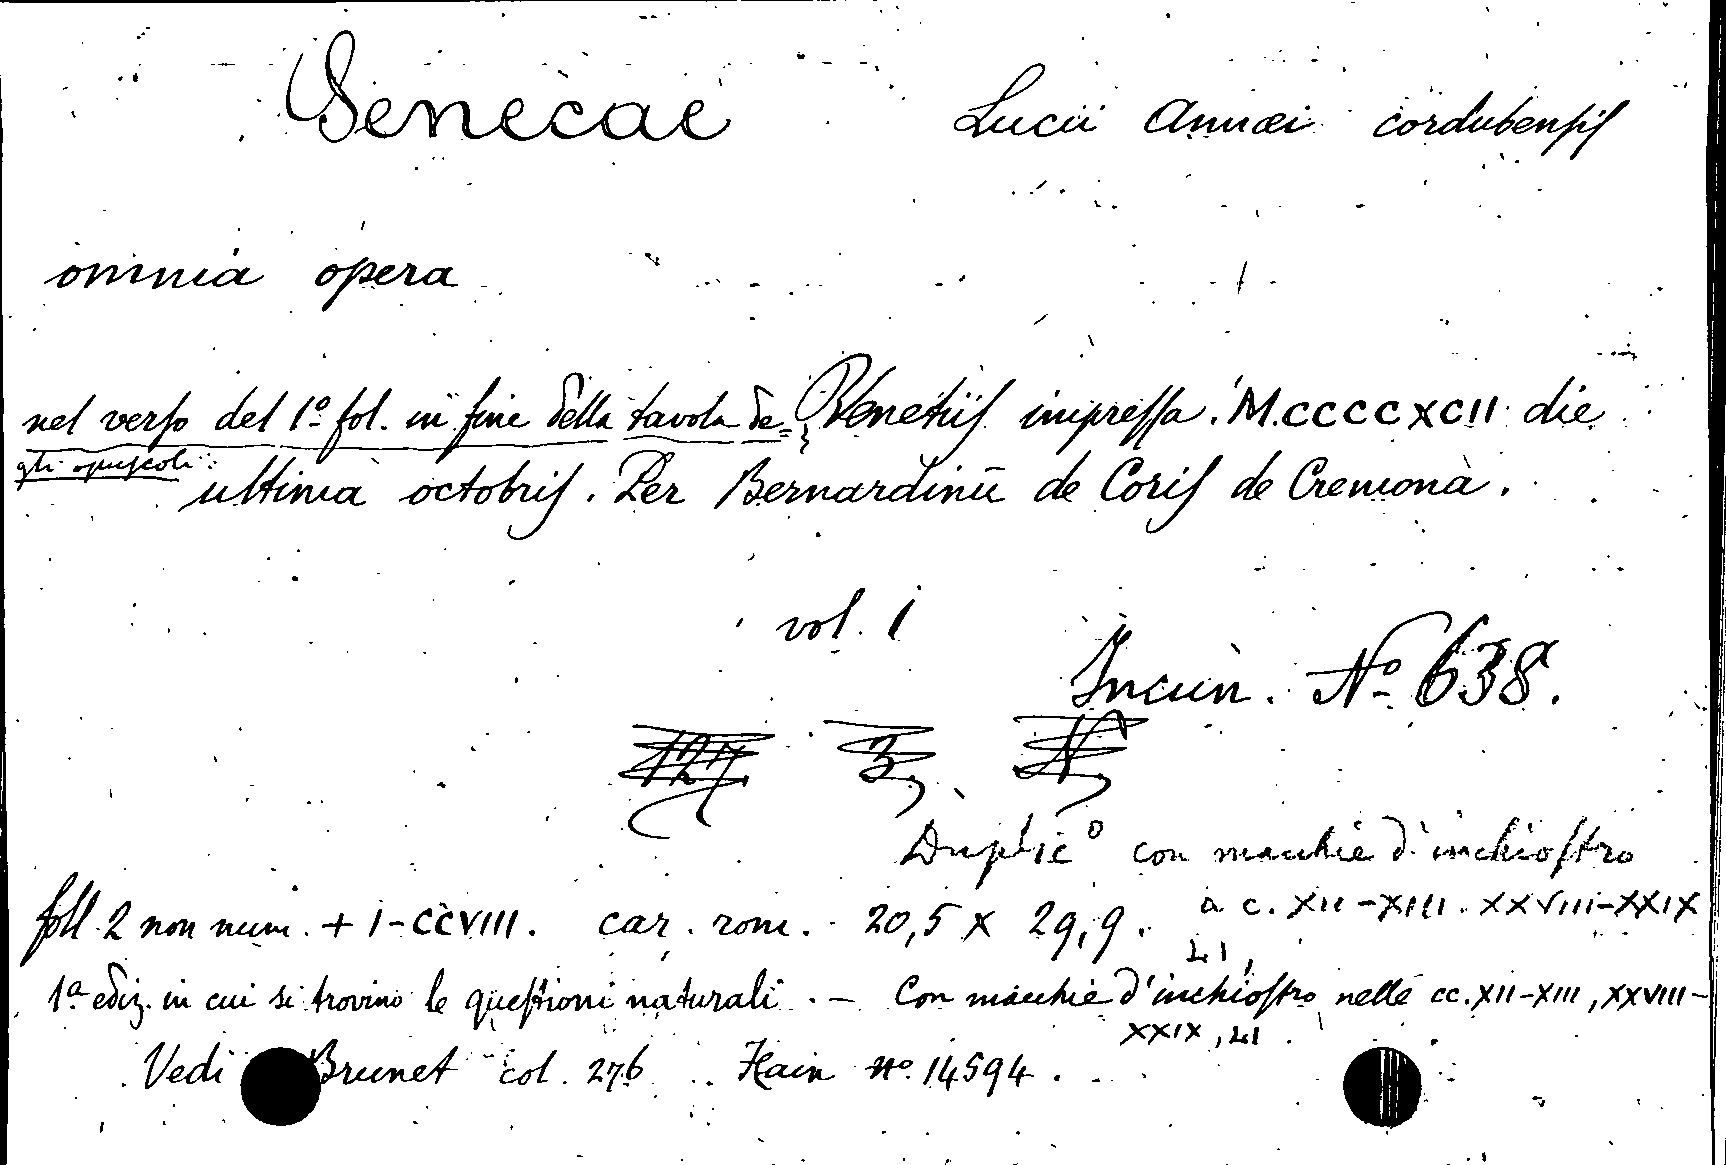 Senecae Lucii Annæi cordubensis
omnia opera
nel verso del 1º fol. in fine della tavola de= Venetiis impressa. M.CCCCXCII die
gli opuscoli:
ultima octobris. Per Bernardinū de Coris de Cremona.
vol. 1
Incun. Nº 638.
127 3
Duplicº con macchie d'inchiostro
a c. XII-XIII. XXVIII-XXIX
LI,
foll. 2 non num. + I-CCVIII. car. rom. 20,5 x 29,9.
1ª ediz. in cui si trovino le questioni naturali. - Con macchie d'inchiostro nelle cc. XII-XIII, XXVIII-
XXIX, LI.
Vedi Brunet col. 276 Hain nº 14594.